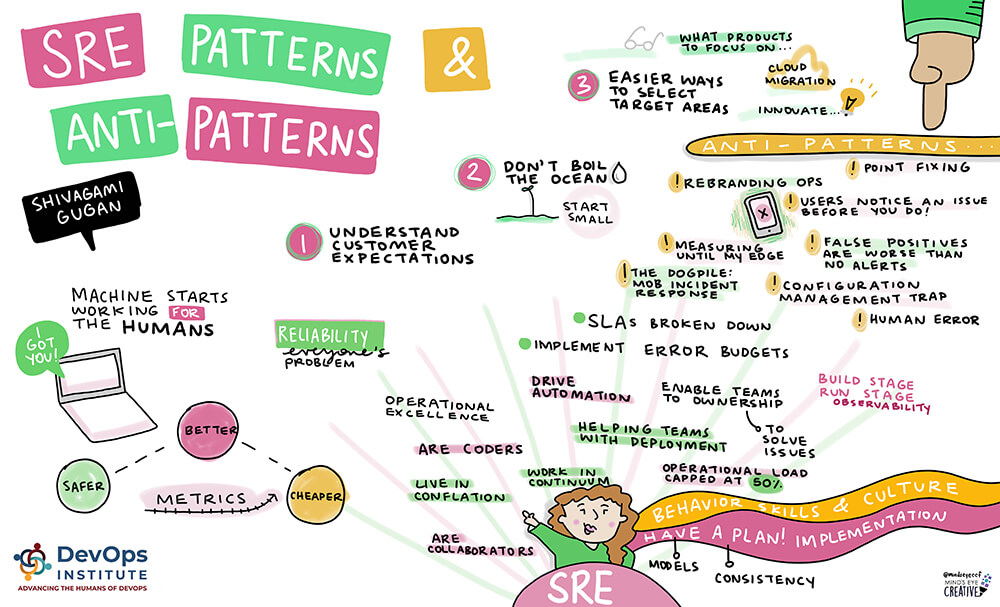 SRE PATTERNS &
ANTI-PATTERNS
SHIVAGAMI
GUGAN
1 UNDERSTAND
CUSTOMER
EXPECTATIONS
2 DON'T BOIL
THE OCEAN
START
SMALL
3 EASIER WAYS
TO SELECT
TARGET AREAS
WHAT PRODUCTS
TO FOCUS ON...
CLOUD
MIGRATION
INNOVATE...
ANTI-PATTERNS...
! POINT FIXING
! REBRANDING OPS
X
! USERS NOTICE AN ISSUE
BEFORE YOU DO!
! MEASURING
UNTIL MY EDGE
! FALSE POSITIVES
ARE WORSE THAN
NO ALERTS
! THE DOGPILE:
MOB INCIDENT
RESPONSE
! CONFIGURATION
MANAGEMENT TRAP
! HUMAN ERROR
MACHINE STARTS
WORKING FOR
THE HUMANS
I
GOT
YOU!
BETTER
SAFER
CHEAPER
METRICS
RELIABILITY
everyone's
PROBLEM
SLAs BROKEN DOWN
IMPLEMENT ERROR BUDGETS
OPERATIONAL
EXCELLENCE
DRIVE
AUTOMATION
ENABLE TEAMS
TO OWNERSHIP
TO
SOLVE
ISSUES
BUILD STAGE
RUN STAGE
OBSERVABILITY
ARE CODERS
HELPING TEAMS
WITH DEPLOYMENT
LIVE IN
CONFLATION
WORK IN
CONTINUUM
OPERATIONAL LOAD
CAPPED AT 50%
ARE
COLLABORATORS
BEHAVIOR SKILLS & CULTURE
HAVE A PLAN! IMPLEMENTATION
MODELS
CONSISTENCY
SRE
DevOps
INSTITUTE
ADVANCING THE HUMANS OF DEVOPS
@mindseyeccf
MIND'S EYE
CREATIVE